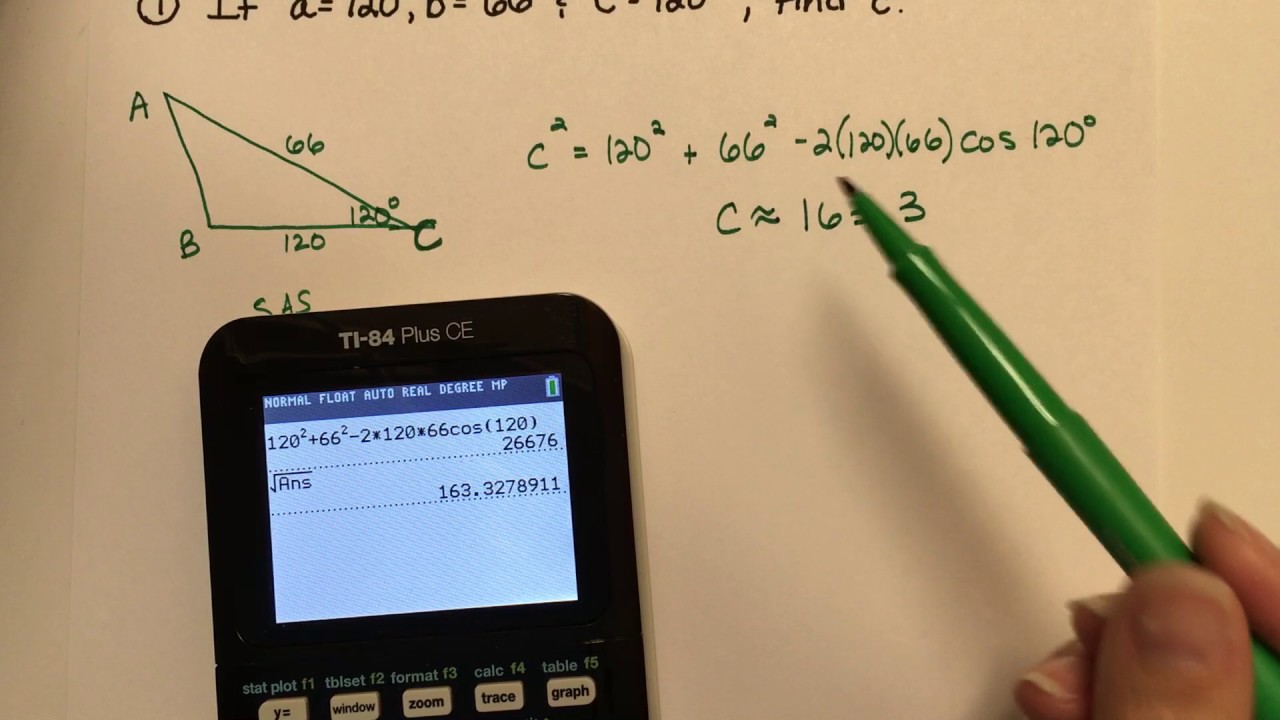 ① If a=120, b=66 & C=120°, find c.
A
66
120°
B
120
C
SAS
c² = 120² + 66² -2(120)(66) cos 120°
c ≈ 16 3
TI-84 Plus CE
NORMAL FLOAT AUTO REAL DEGREE MP
120²+66²-2*120*66cos(120)
26676
√Ans
163.3278911
stat plot f1 tblset f2 format f3 calc f4 table f5
y= window zoom trace graph